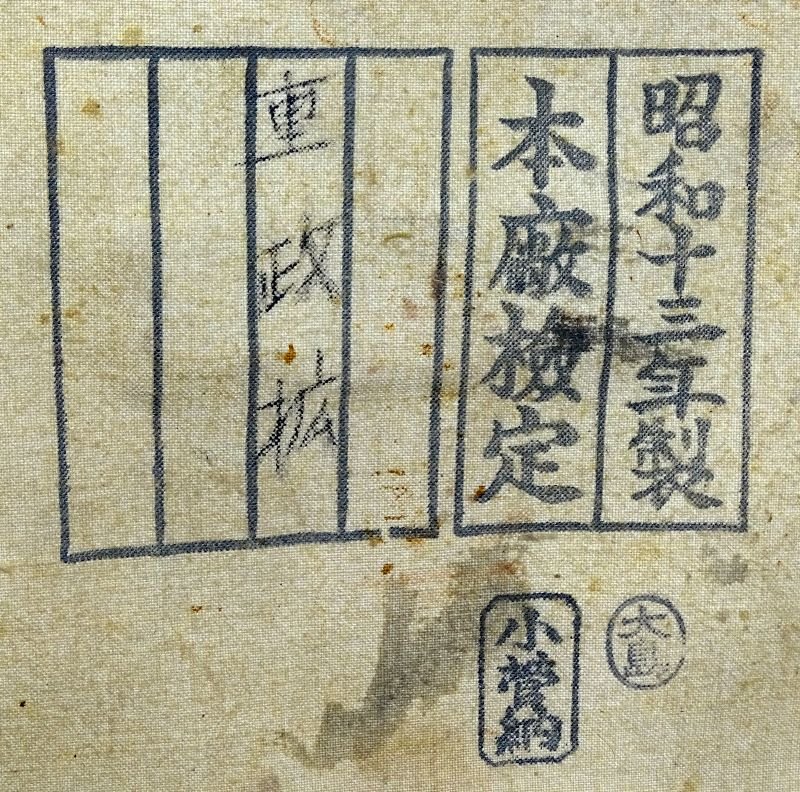 昭和十三年製
本廠檢定
重政拡
大島
小菅納